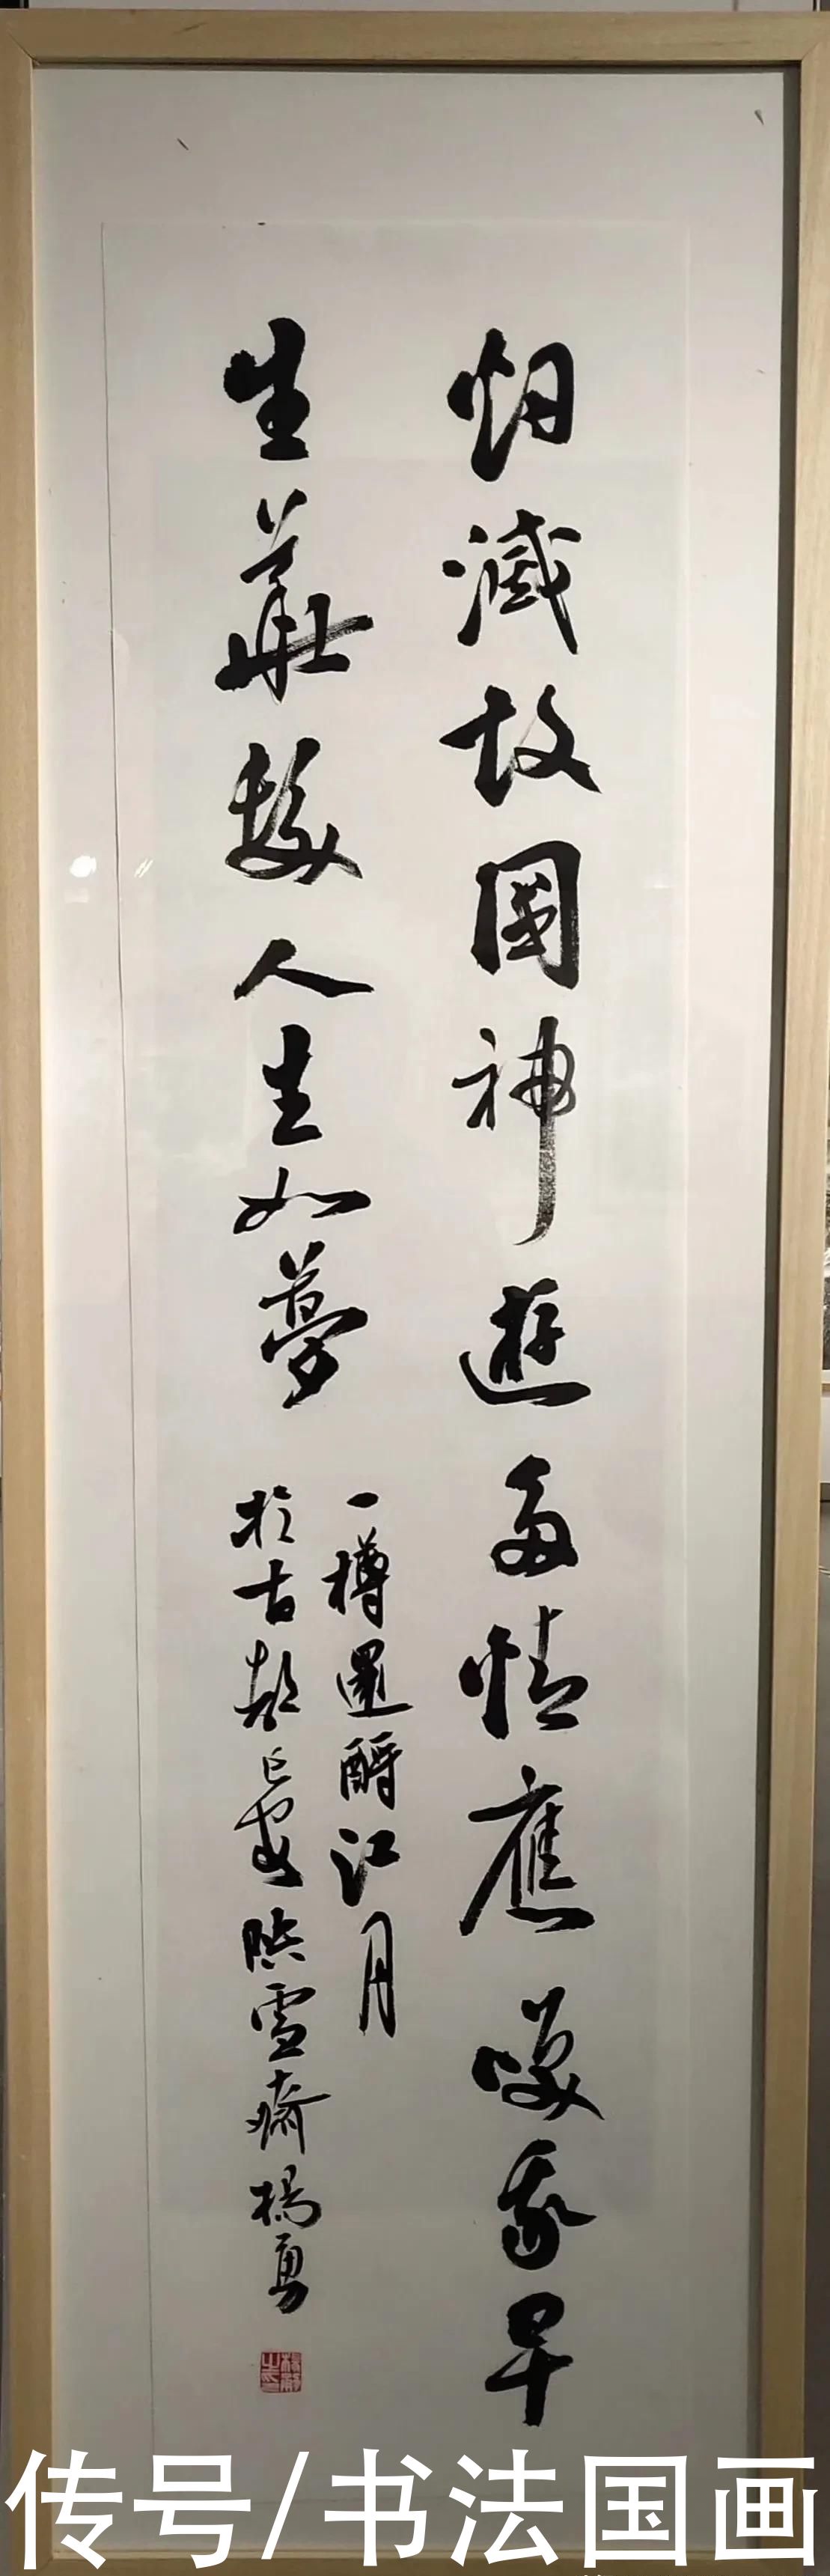 烟滅故國神遊多情應咲我早
生華髮人生如夢
一樽還酹江月
於古都長安映雪齋楊勇
传号/书法国画